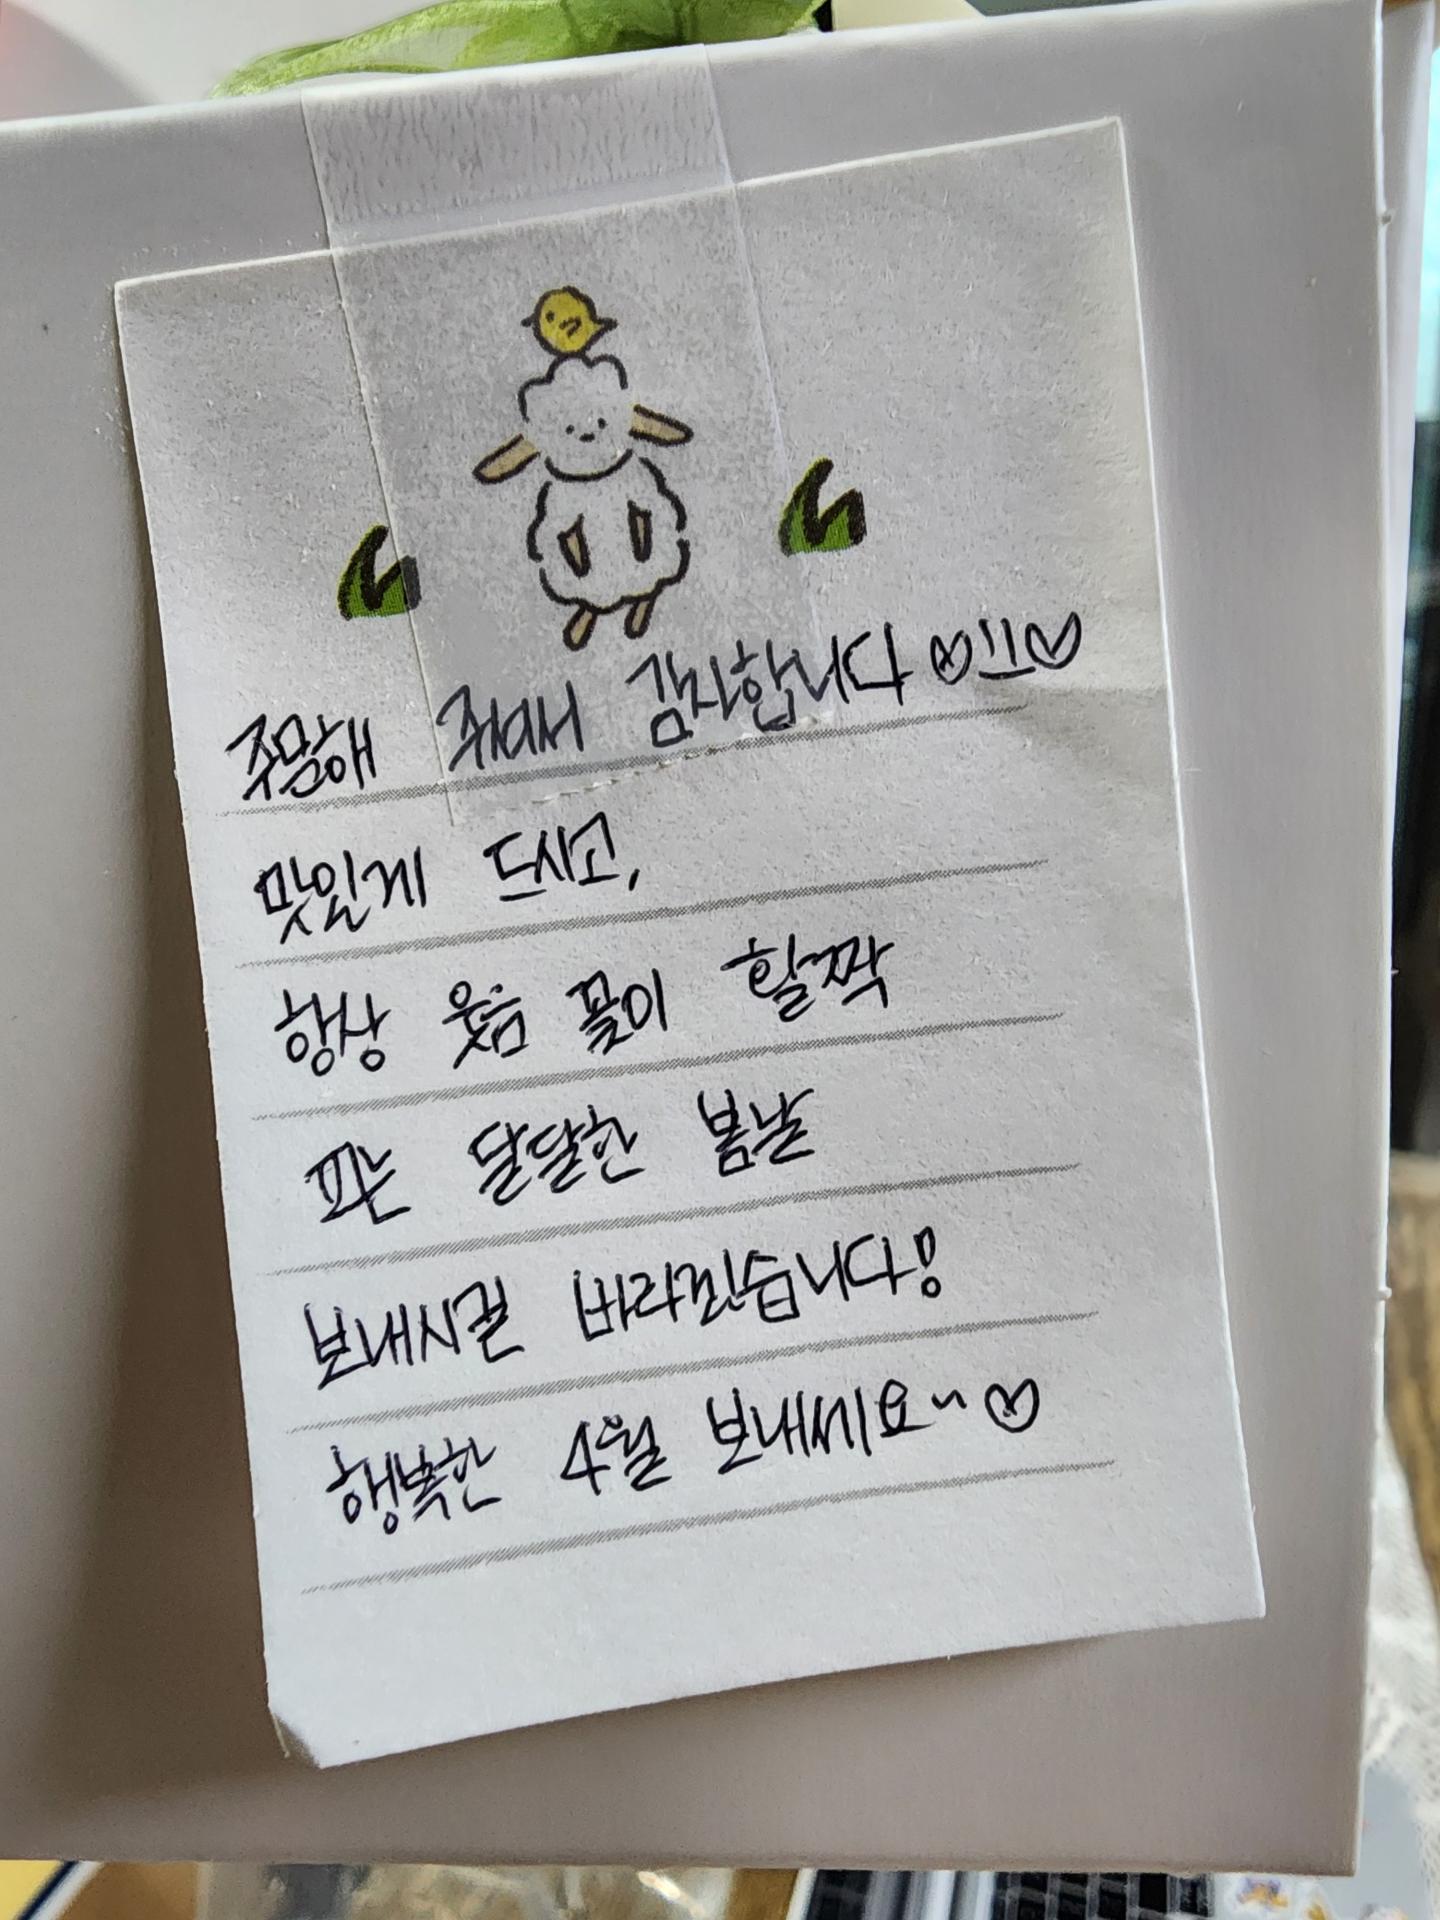 주문해 주셔서 감사합니다♡!!♡
맛있게 드시고,
항상 웃음 꽃이 활짝
피는 달달한 봄날
보내시길 바라겠습니다!
행복한 4월 보내세요~♡